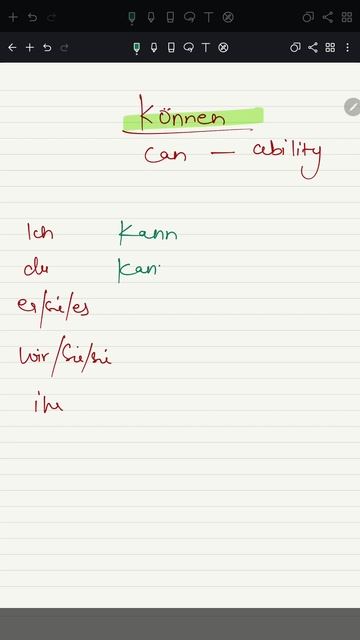 Können
can — ability
Ich kann
du kan
er/sie/es
wir/Sie/sie
ihr